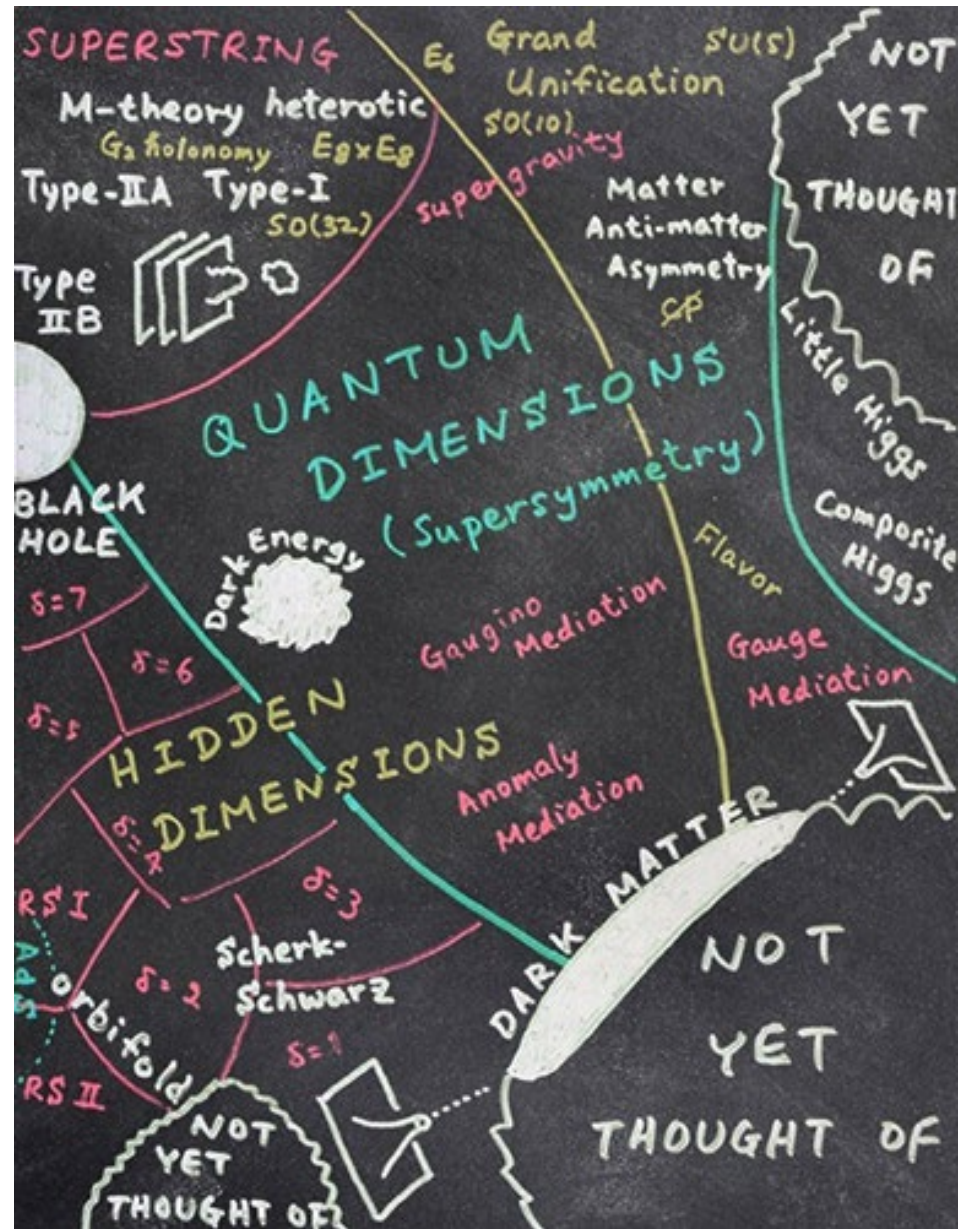 SUPERSTRING
M-theory heterotic
G₂ holonomy E8xE8
Type-IIA Type-I
SO(32)
Type
IIB
E6
Grand
Unification
SU(5)
SO(10)
supergravity
Matter
Anti-matter
Asymmetry
CP
NOT
YET
THOUGHT
OF
Little Higgs
Composite
Higgs
QUANTUM
DIMENSIONS
(Supersymmetry)
BLACK
HOLE
Dark Energy
Flavor
Gaugino
Mediation
Gauge
Mediation
Anomaly
Mediation
δ=7
δ=6
δ=5
HIDDEN
DIMENSIONS
δ=3
DARK MATTER
RS I
AdS
orbifold
RS II
δ=2
Scherk-
Schwarz
δ=1
NOT
YET
THOUGHT OF
NOT
YET
THOUGHT OF